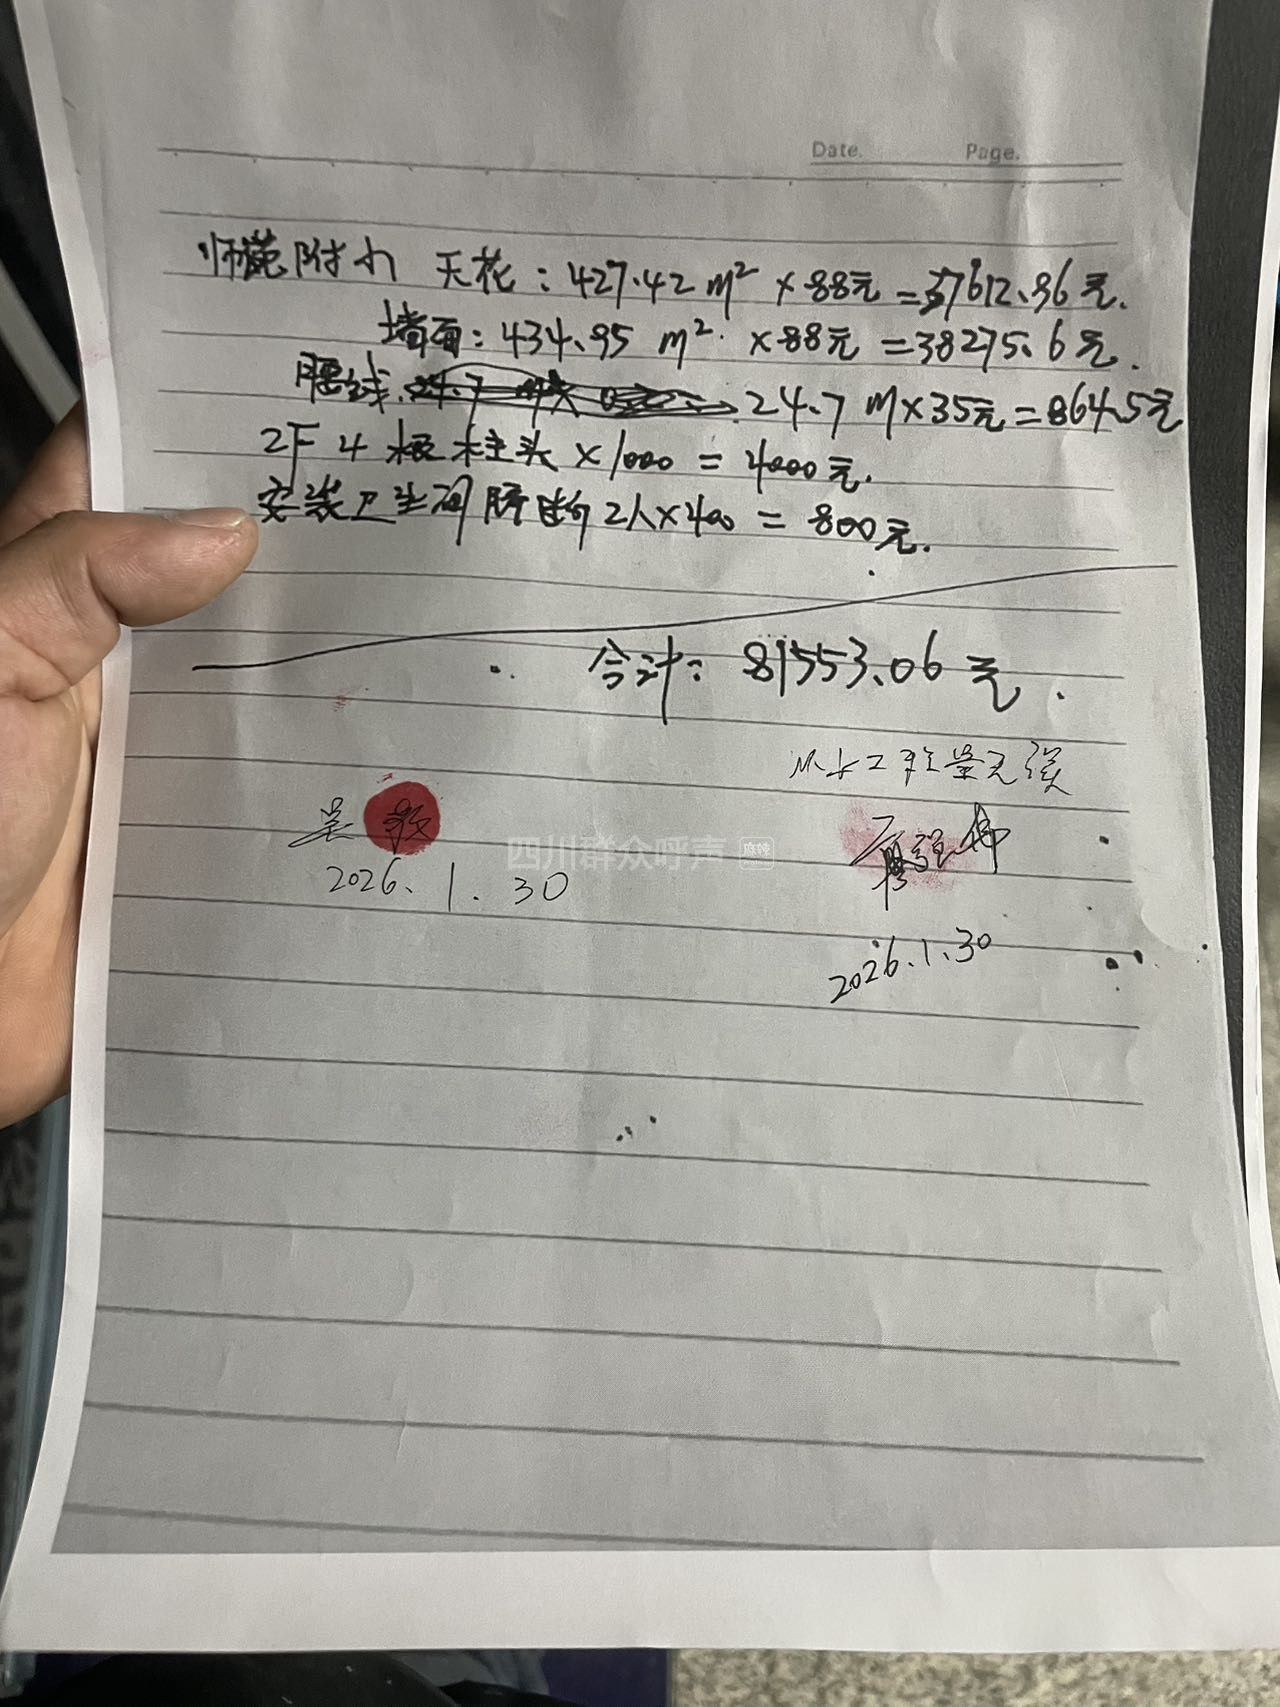 Date.    Page.
师范附小 天花：427.42 m² ×88元=37612.96元.
墙面：434.95 m² ×88元=38275.6元.
腰线 24.7 m×35元=864.5元
2F 4根柱头×1000=4000元.
安装卫生间 2人×400=800元.
合计：81553.06元.
以上工程量无误
吴
四川群众呼声 麻辣
2026.1.30
2026.1.30